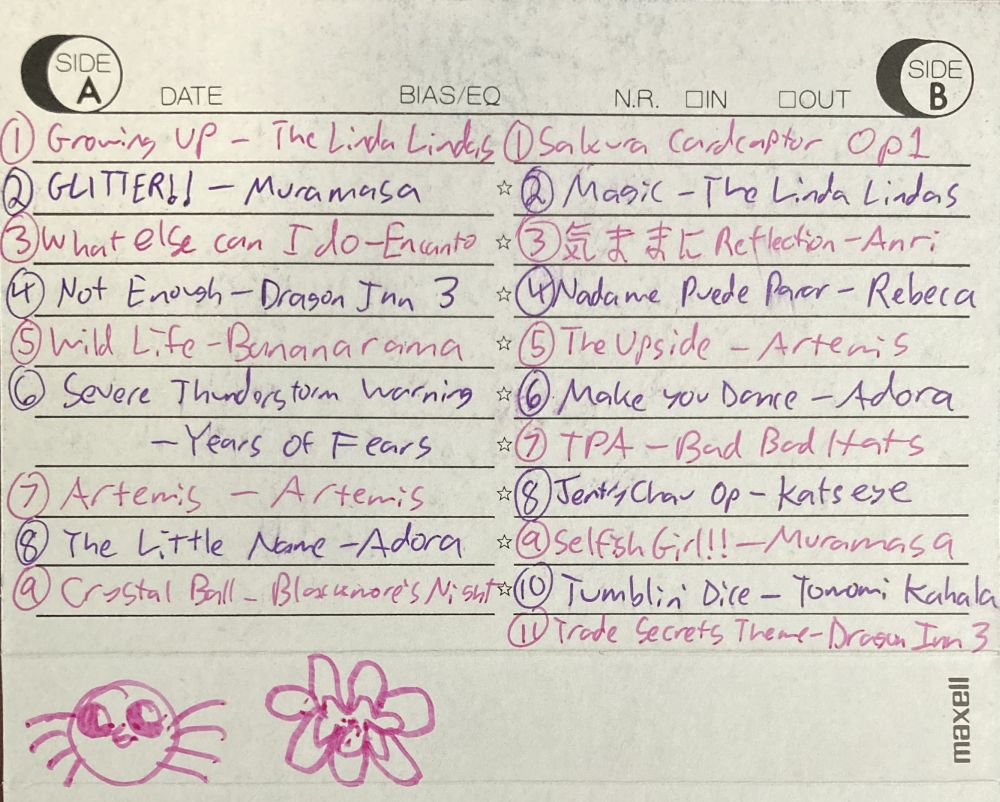 SIDE A
DATE BIAS/EQ N.R. □IN □OUT
SIDE B
① Growing UP - The Linda Lindas
② GLITTER!! - Muramasa
③ What else can I do - Encanto
④ Not Enough - Dragon Inn 3
⑤ Wild Life - Bananarama
⑥ Severe Thunderstorm Warning
- Years of Fears
⑦ Artemis - Artemis
⑧ The Little Name - Adora
⑨ Crystal Ball - Blackmore's Night
① Sakura Cardcaptor Op1
☆ ② Magic - The Linda Lindas
☆ ③ 気ままに Reflection - Anri
☆ ④ Nadame Puede Parar - Rebeca
☆ ⑤ The Upside - Artemis
☆ ⑥ Make you Dance - Adora
☆ ⑦ TPA - Bad Bad Hats
☆ ⑧ Jentry Chau Op - Katseye
☆ ⑨ Selfish Girl!! - Muramasa
☆ ⑩ Tumblin' Dice - Tomomi Kahala
⑪ Trade Secrets Theme - Dragon Inn 3
maxell